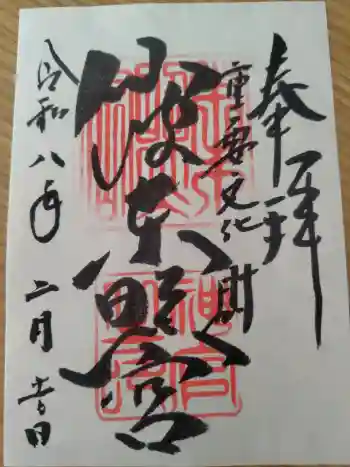 奉拝
重要文化財
仙波東照宮
令和八年 二月吉日